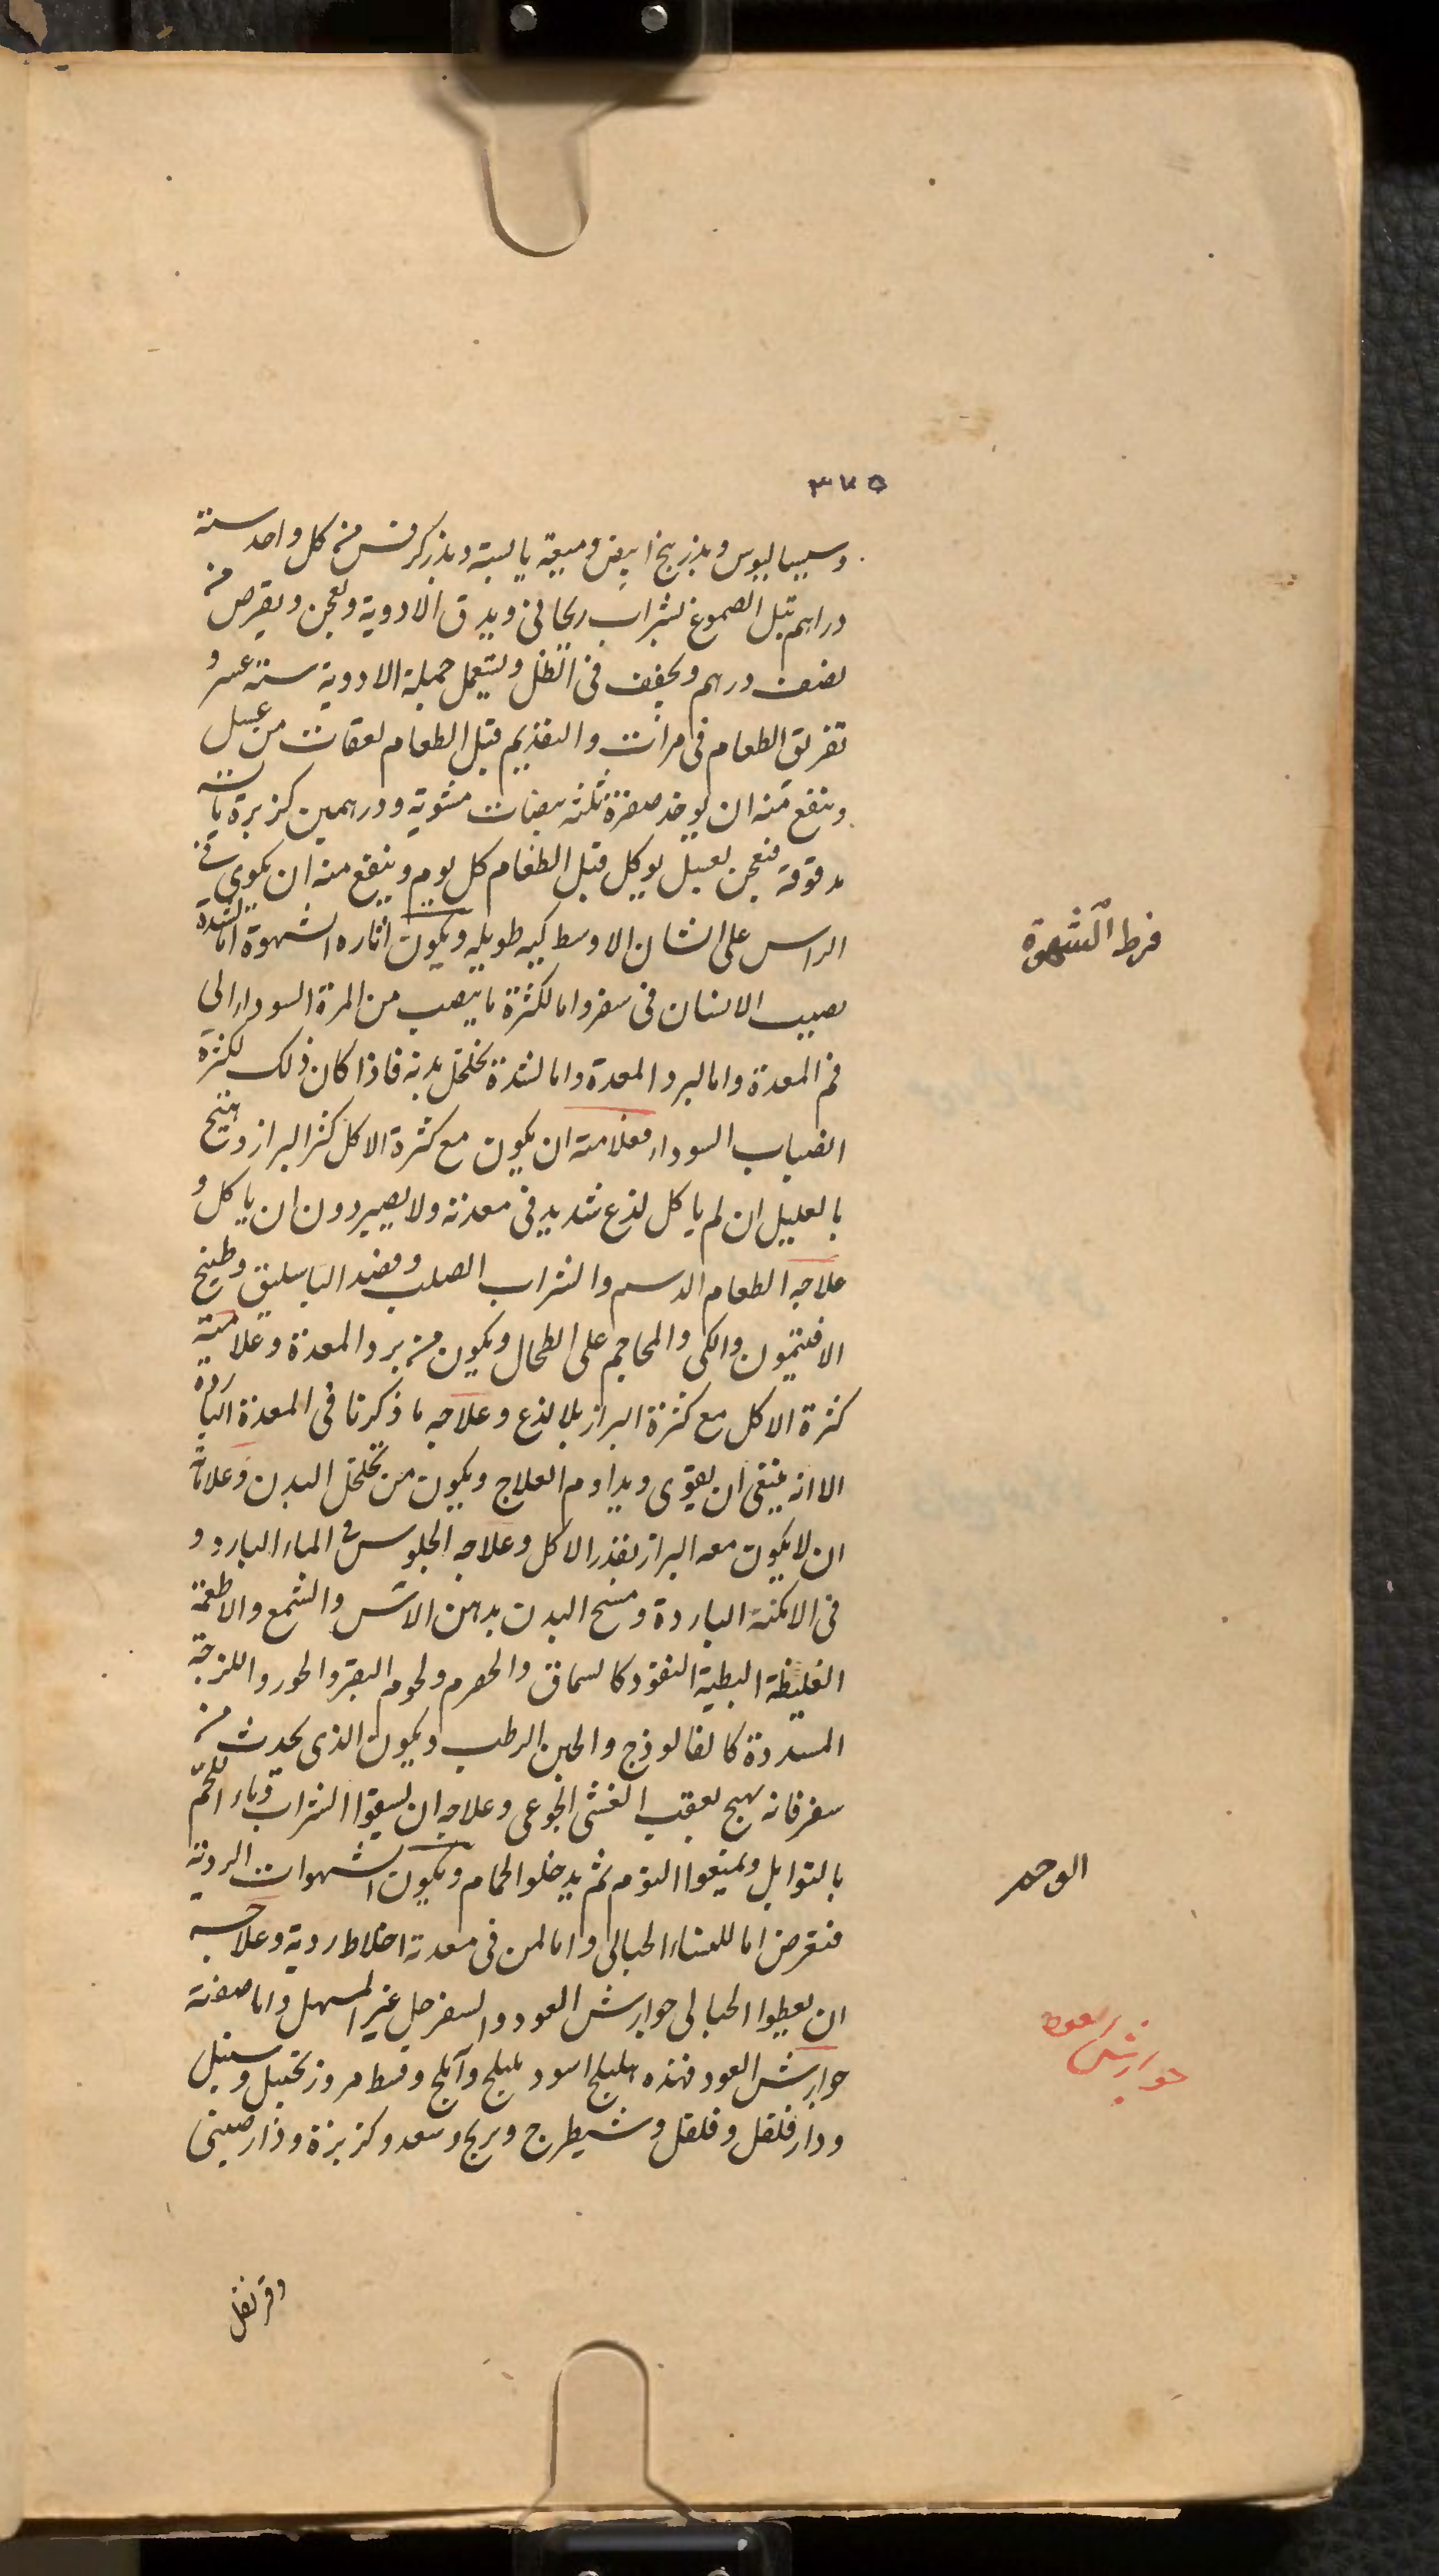 ٣٧٥
وسيساليوس وبذر بنج ابيض وميعة يابسة وبذر كرفس من كل واحد ستة
دراهم تبل الصموغ بشراب ريحاني ويدق الادوية ويعجن ويقرص من
نصف درهم ويجفف في الظل ويستعمل جملة الادوية ستة عشر و
تفريق الطعام في مرات والتقديم قبل الطعام لعقات من عسل
وينفع منه ان يوخذ صفرة ثلثة بيضات مشوية ودرهمين كزبرة يابسة
مدقوقة فتعجن بعسل يوكل قبل الطعام كل يوم وينفع منه ان يكوى في
الراس على الشان الاوسط كيه طويله ويكون اثاره الشهوة اما لشدة
نصيب الانسان في سفر واما لكثرة ما ينصب من المرة السوداء الى
فم المعدة واما لبرد المعدة واما لشدة تخلخل بدنه فاذا كان ذلك لكثرة
انصباب السوداء فعلامته ان يكون مع كثرة الاكل كثر البراز ويهيج
بالعليل ان لم ياكل لذع شديد في معدته ولا يصير دون ان ياكل و
علاجه الطعام الدسم والشراب الصلب وفصد الباسليق وطبيخ
الافتيمون والكى والمحاجم على الطحال ويكون من برد المعدة وعلامته
كثرة الاكل مع كثرة البراز بلا لذع وعلاجه ما ذكرنا في المعدة الباردة
الا انه ينبغي ان يقوى ويداوم العلاج ويكون من تخلخل البدن وعلاماته
ان لا يكون معه البراز بقدر الاكل وعلاجه الجلوس في الماء البارد و
في الامكنة الباردة ومسح البدن بدهن الاس والشمع والاطعمة
الغليظة البطية النفوذ كالسماق والحصرم ولحوم البقر والحور واللزجة
المسددة كالفالوذج والجبن الرطب ويكون الذي يحدث من
سفر فانه يهيج بعقب الغشى الجوعى وعلاجه ان يسقوا الشراب وماء اللحم
بالتوابل ويمنعوا النوم ثم يدخلوا الحمام ويكون الشهوات الردية
فتعرض اما للنساء الحبالى واما لمن في معدته اخلاط ردية وعلاجه
ان يعطوا الحبالى جوارش العود والسفرجل غير المسهل واما صفته
جوارش العود فهذه هليلج اسود بليلج وآملج وقسط مر وزنجبيل وسنبل
ودار فلفل وفلفل وشيطرج وبرنج وسعد وكزبزة ودارصينى
وقرنفل
فرط الشهوة
الوحم
جوارش العود